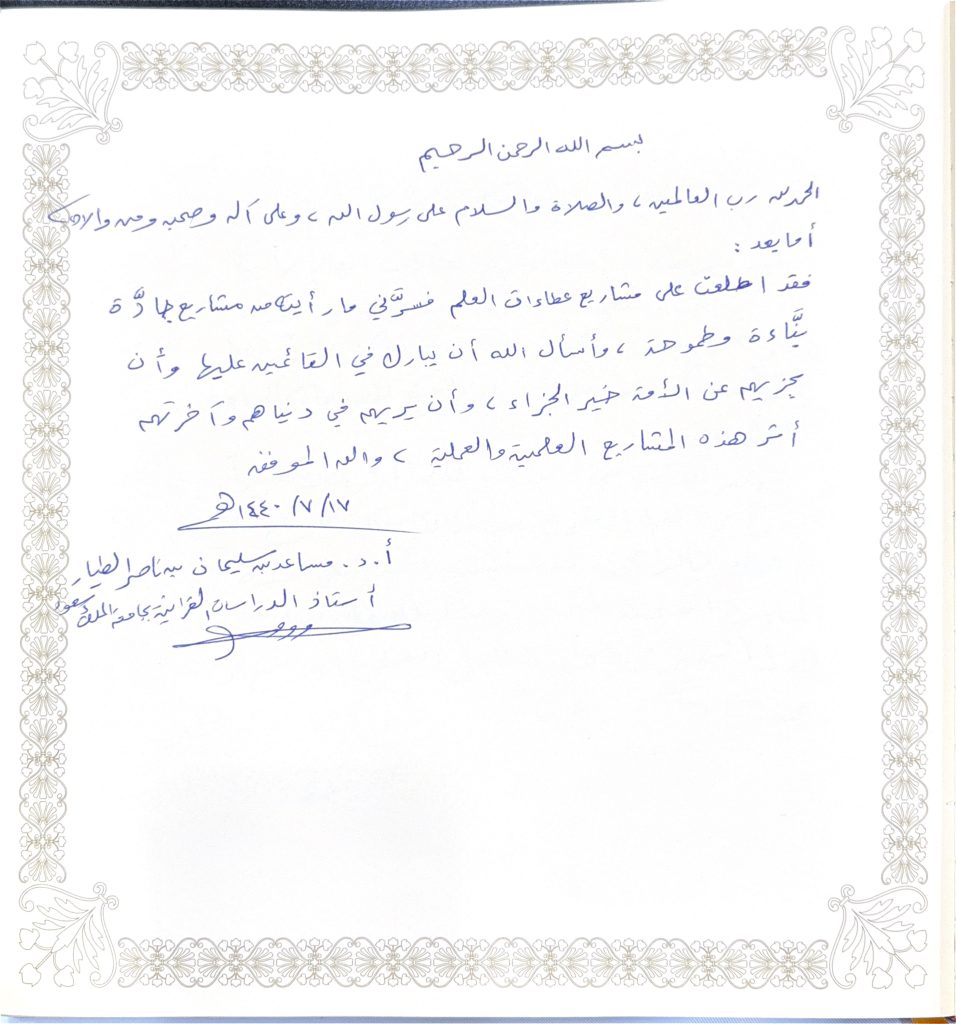 بسم الله الرحمن الرحيم
الحمد لله رب العالمين، والصلاة والسلام على رسول الله، وعلى آله وصحبه ومن والاه
أما بعد :
فقد اطلعت على مشاريع عطاءات العلم فسرَّني ما رأيته من مشاريع جادَّة
بنَّاءة وطموحة، وأسأل الله أن يبارك في القائمين عليها وأن
يجزيهم عن الأمة خير الجزاء، وأن يريهم في دنياهم وآخرتهم
أثر هذه المشاريع العلمية والعملية، والله الموفق
١٤٤٠/٧/١٧هـ
أ.د. مساعد بن سليمان بن ناصر الطيار
أستاذ الدراسات القرآنية بجامعة الملك سعود